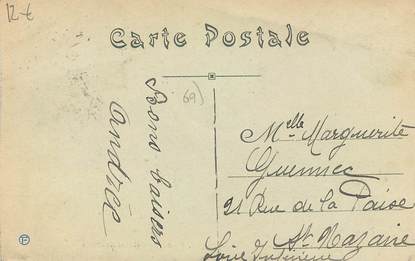 12 €
Carte Postale
69)
Bons baisers
Andrée
Melle Marguerite
Guennec
21 Rue de la Paix
St Nazaire
Loire Inférieure